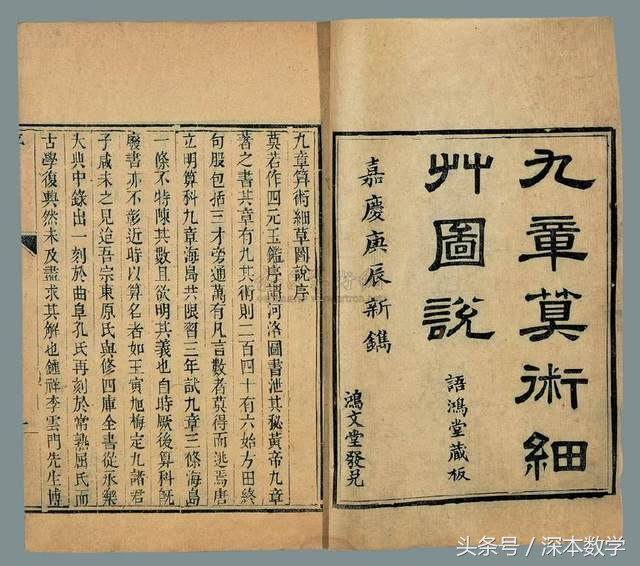 九章算術細
艸圖説
嘉慶庚辰新鐫
語鴻堂藏板
鴻文堂發兌
九章算術細草圖說序
莫若作四元玉鑑序謂河洛圖書泄其秘黃帝九章
著之書其章有九其術則二百四十有六始方田終
句股包括三才旁通萬有凡言數者莫得而逃焉唐
立明算科九章海島共限習三年試九章三條海島
一條不特陳其數且欲明其義也自時厥後算科旣
廢書亦不彰近時以算名者如王寅旭梅定九諸君
子咸未之見迨吾宗東原氏與修四庫全書從永樂
大典中錄出一刻於曲阜孔氏再刻於常熟屈氏而
古學復興然未及盡求其解也鍾祥李雲門先生博
头条号 / 深本数学